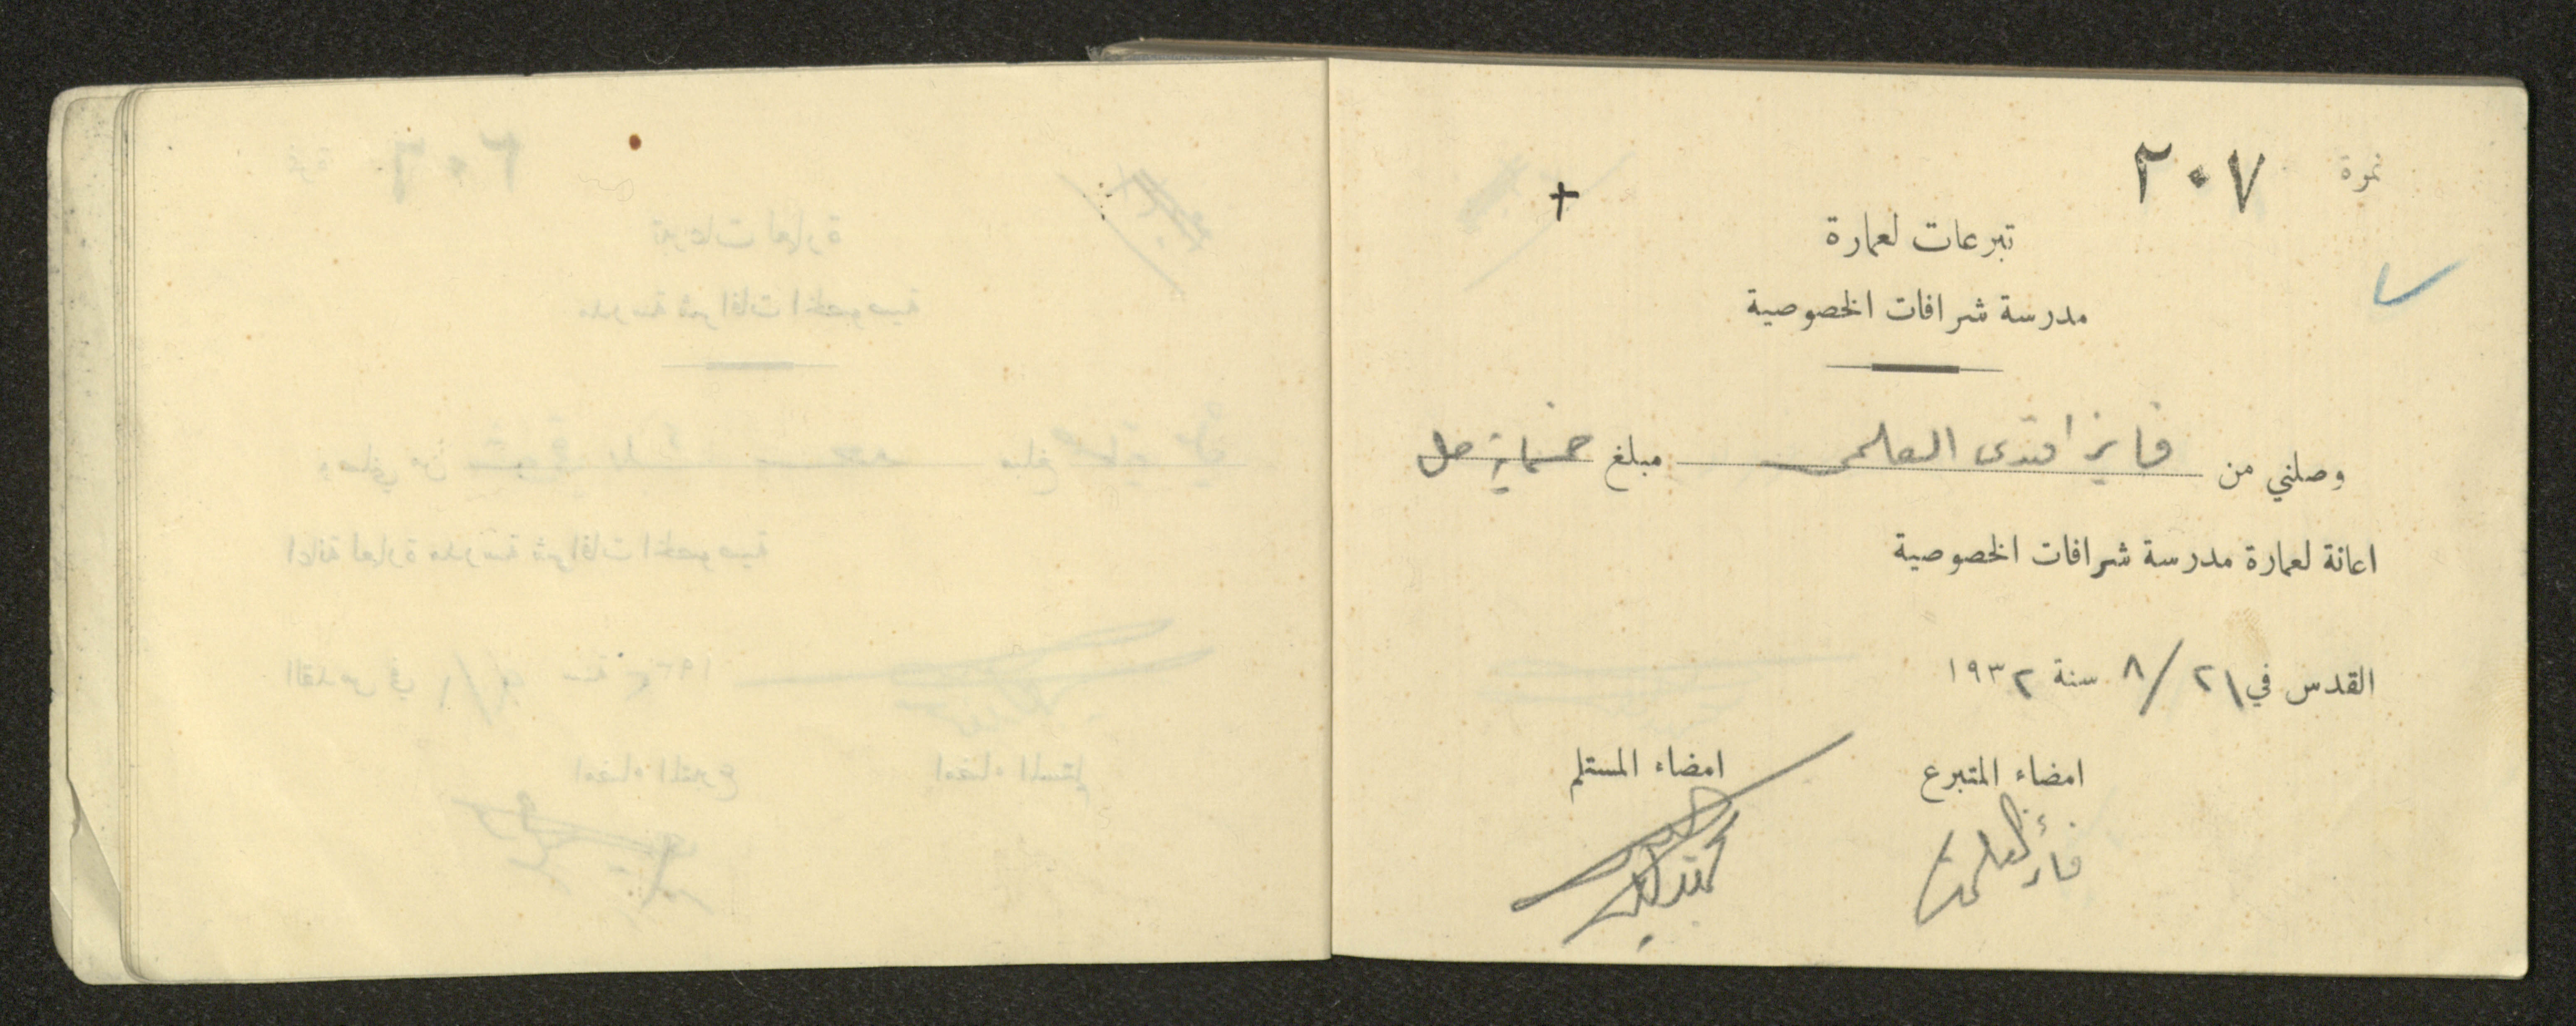 نمرة ٢٠٧
تبرعات لعمارة
مدرسة شرافات الخصوصية
وصلني من فايز افندي العلمي مبلغ خمسماية مل
اعانة لعمارة مدرسة شرافات الخصوصية
القدس في ٢١/٨ سنة ١٩٣٢
امضاء المتبرع امضاء المستلم
فائز العلمي